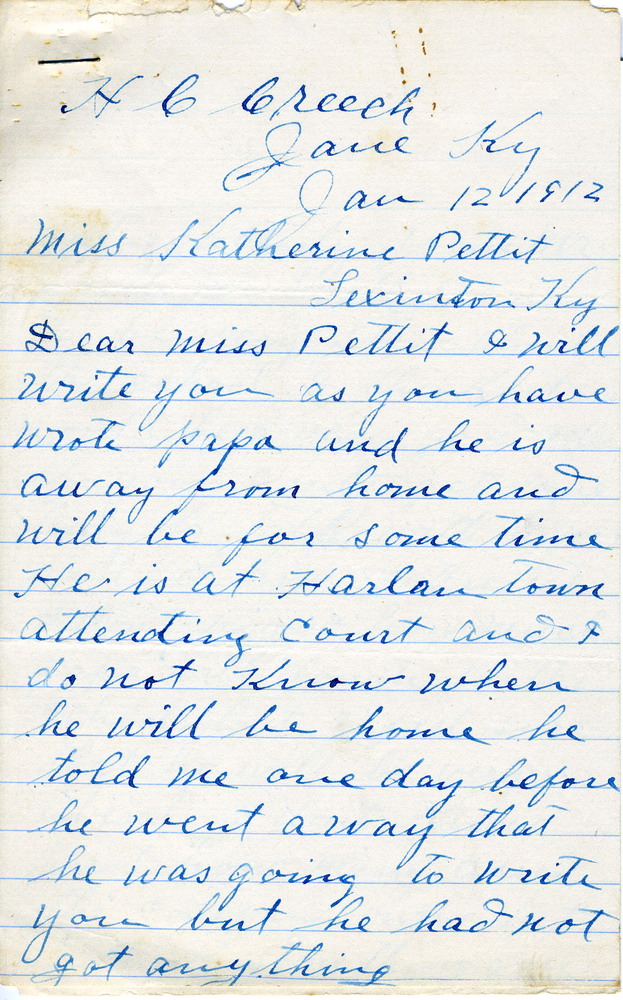 H C Creech
Jane Ky
Jan 12 1912
Miss Katherine Pettit
Lexinton Ky
Dear Miss Pettit I will
write you as you have
wrote papa and he is
away from home and
will be for some time
He is at Harlan Town
attending Court and I
do not Know when
he will be home he
told me one day before
he went away that
he was going to write
you but he had not
got anything